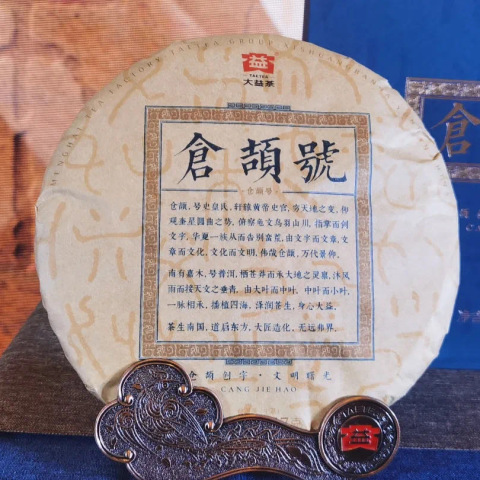 益
TAETEA
大益茶
MENGHAI TEA FACTORY TAETEA GROUP XISHUANGBANNA
倉頡號
倉
仓颉号
仓颉，号史皇氏，轩辕黄帝史官，穷天地之变，仰
观奎星圆曲之势，俯察龟文鸟羽山川，指掌而创
文字，华夏一族从而告别蛮荒，由文字而文章，文
章而文化，文化而文明，伟哉仓颉，万代景仰。
南有嘉木，号普洱，栖苍井而承大地之灵禀，沐风
雨而接天文之垂青，由大叶而中叶，中叶而小叶，
一脉相承，播植四海，泽润苍生，身心大益。
茶生南国，道启东方，大匠造化，无远弗界。
仓颉创字·文明曙光
CANG JIE HAO
TAETEA
益